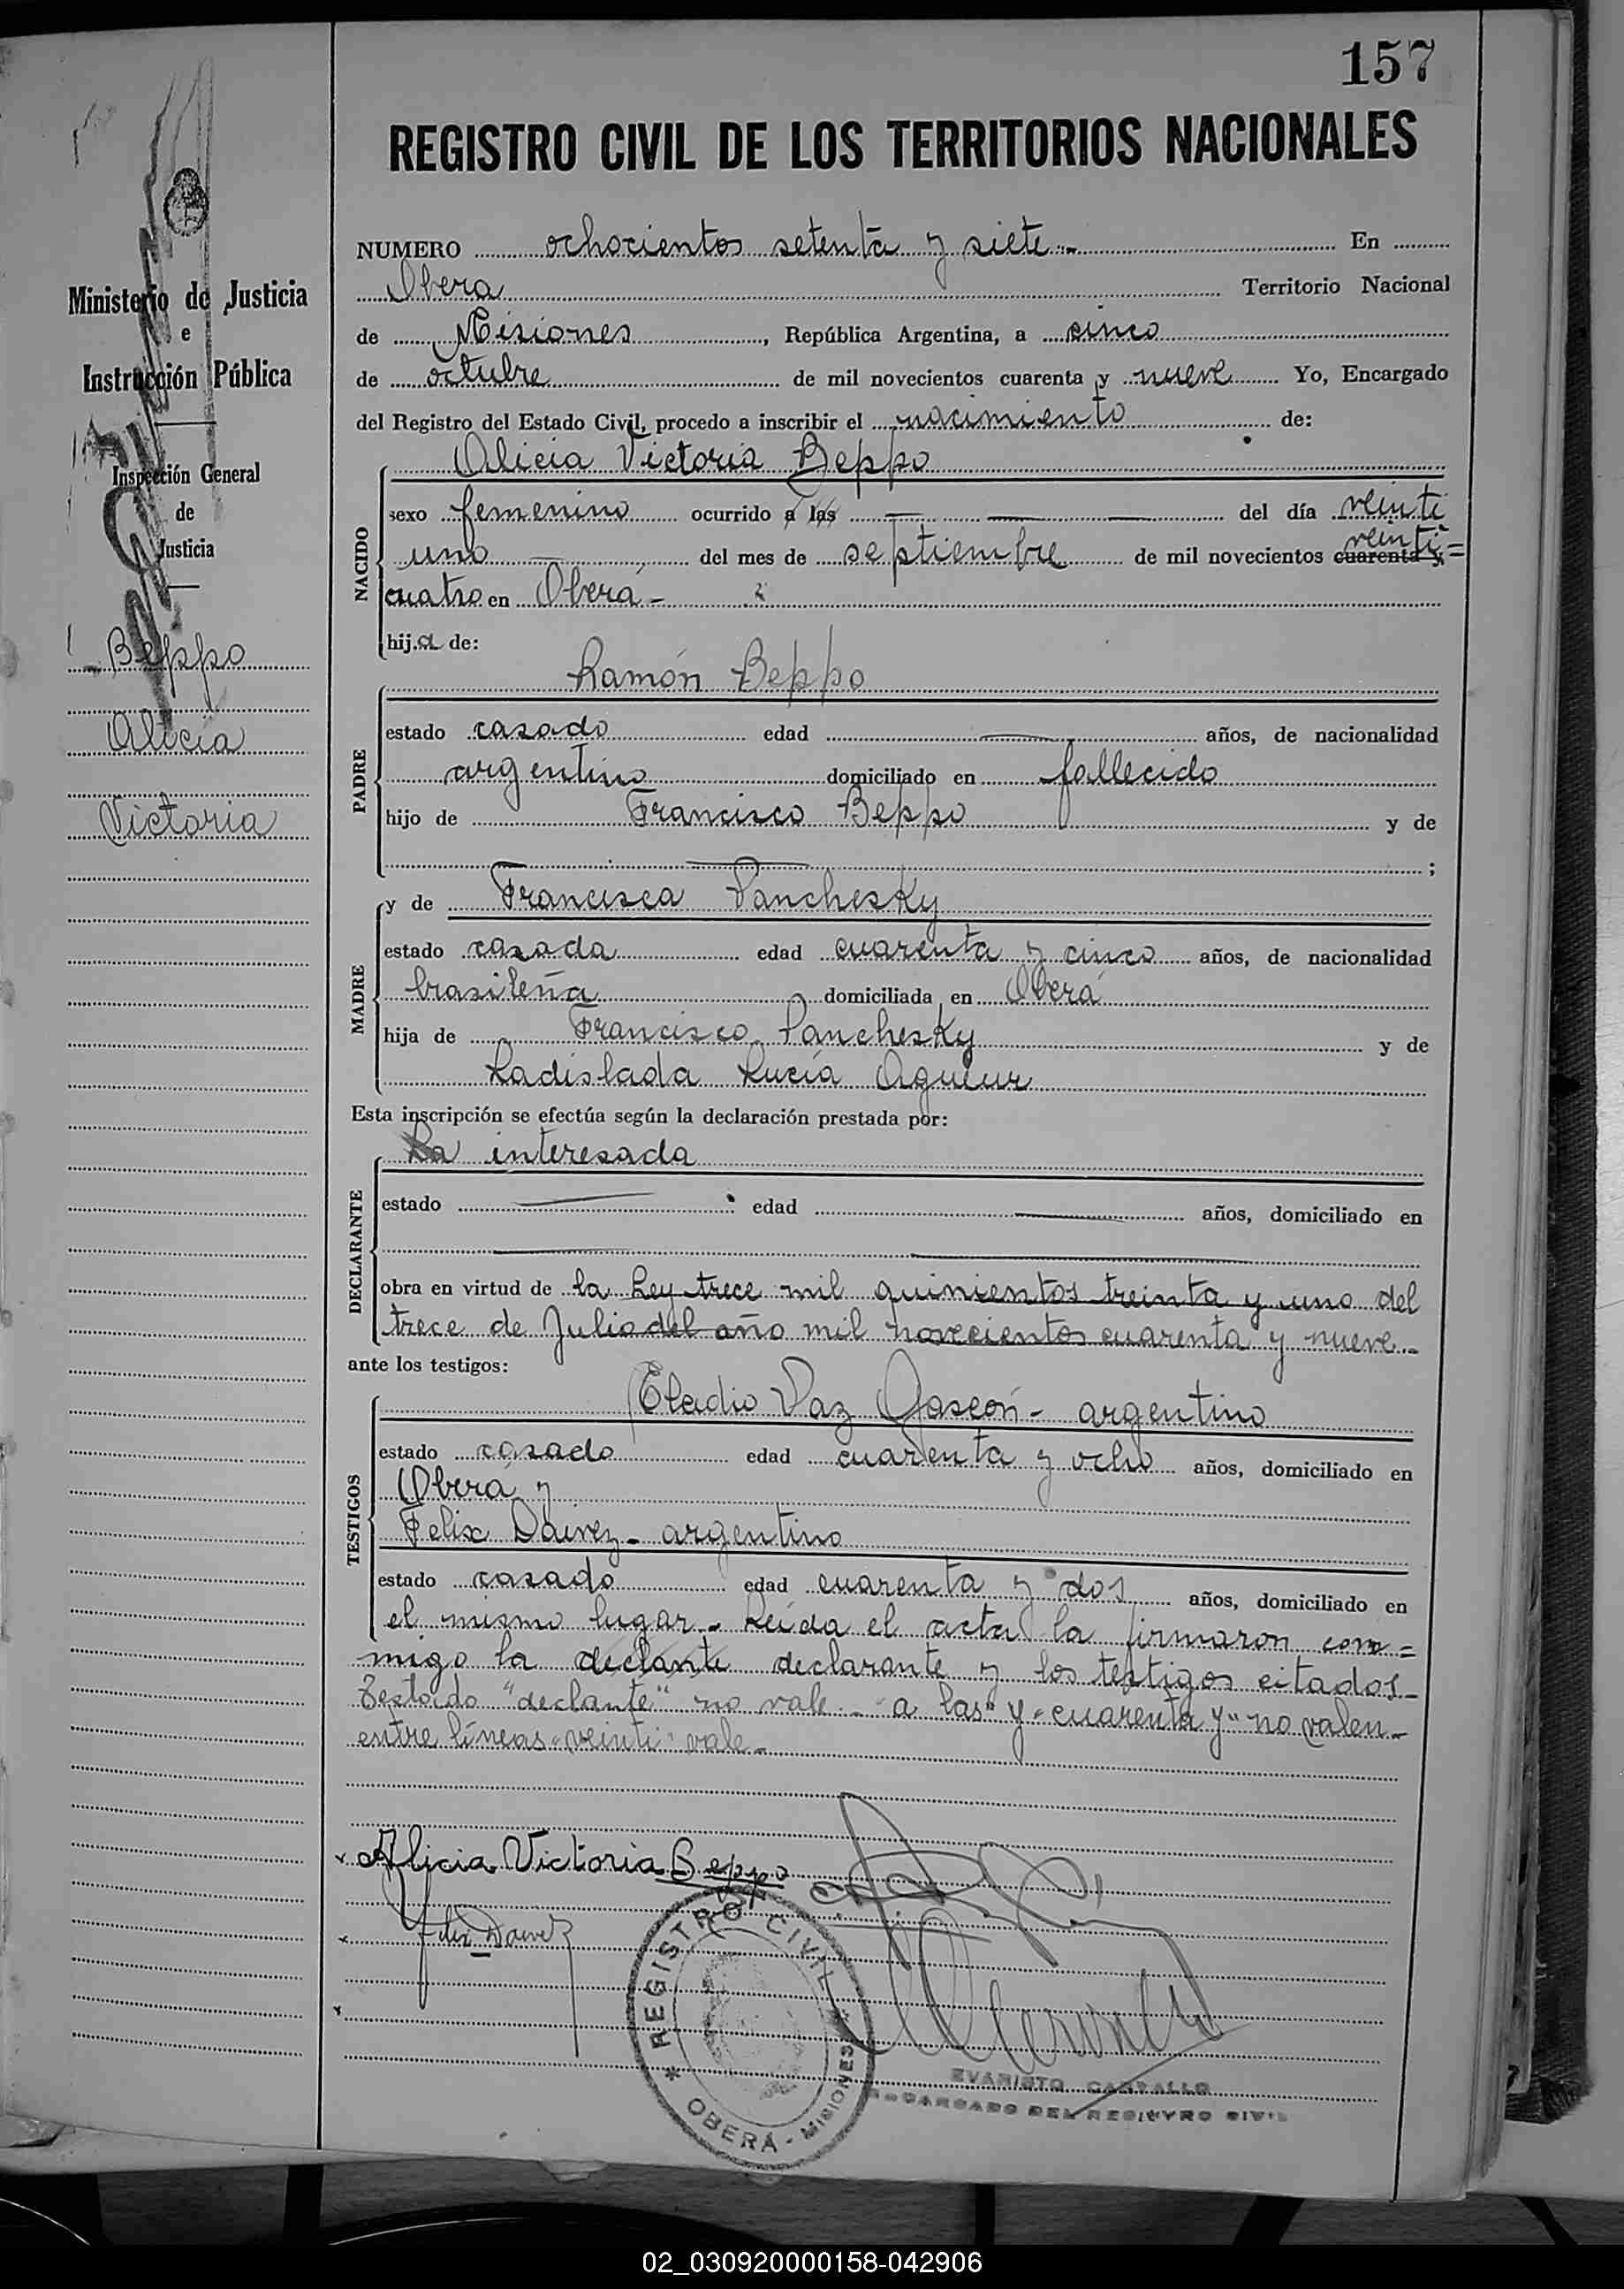 157
REGISTRO CIVIL DE LOS TERRITORIOS NACIONALES
Ministerio de Justicia
e
Instrucción Pública
Inspección General
de
Justicia
Beppo
Alicia
Victoria
NUMERO ochocientos setenta y siete.- En
Obera Territorio Nacional
de Misiones, República Argentina, a cinco
de octubre de mil novecientos cuarenta y nueve Yo, Encargado
del Registro del Estado Civil, procedo a inscribir el nacimiento de:
NACIDO
Alicia Victoria Beppo
sexo femenino ocurrido a las — — — del día veinti
uno — del mes de septiembre de mil novecientos cuarenta y veinti=
cuatro en Oberá-
hija de:
PADRE
Ramón Beppo
estado casado edad — años, de nacionalidad
argentino domiciliado en fallecido
hijo de Francisco Beppo y de
— ;
MADRE
y de Francisca Panchesky
estado casada edad cuarenta y cinco años, de nacionalidad
brasileña domiciliada en Oberá
hija de Francisco Panchesky y de
Ladislada Lucía
Esta inscripción se efectúa según la declaración prestada por:
DECLARANTE
La interesada
estado — edad — años, domiciliado en
— —
obra en virtud de la Ley trece mil quinientos treinta y uno del
trece de Julio del año mil novecientos cuarenta y nueve.-
ante los testigos:
TESTIGOS
Eladio Vaz Gascón- argentino
estado casado edad cuarenta y ocho años, domiciliado en
Oberá y
Felix - argentino
estado casado edad cuarenta y dos años, domiciliado en
el mismo lugar.- Leída el acta la firmaron con=
migo la declante declarante y los testigos citados-
Testado "declante" no vale.- "a las" y "cuarenta y" no valen-
entre líneas "veinti" vale-
Alicia Victoria Beppo
REGISTRO CIVIL
* OBERÁ - MISIONES *
EVARISTO CARVALLO
ENCARGADO DEL REGISTRO CIVIL
02_030920000158-042906